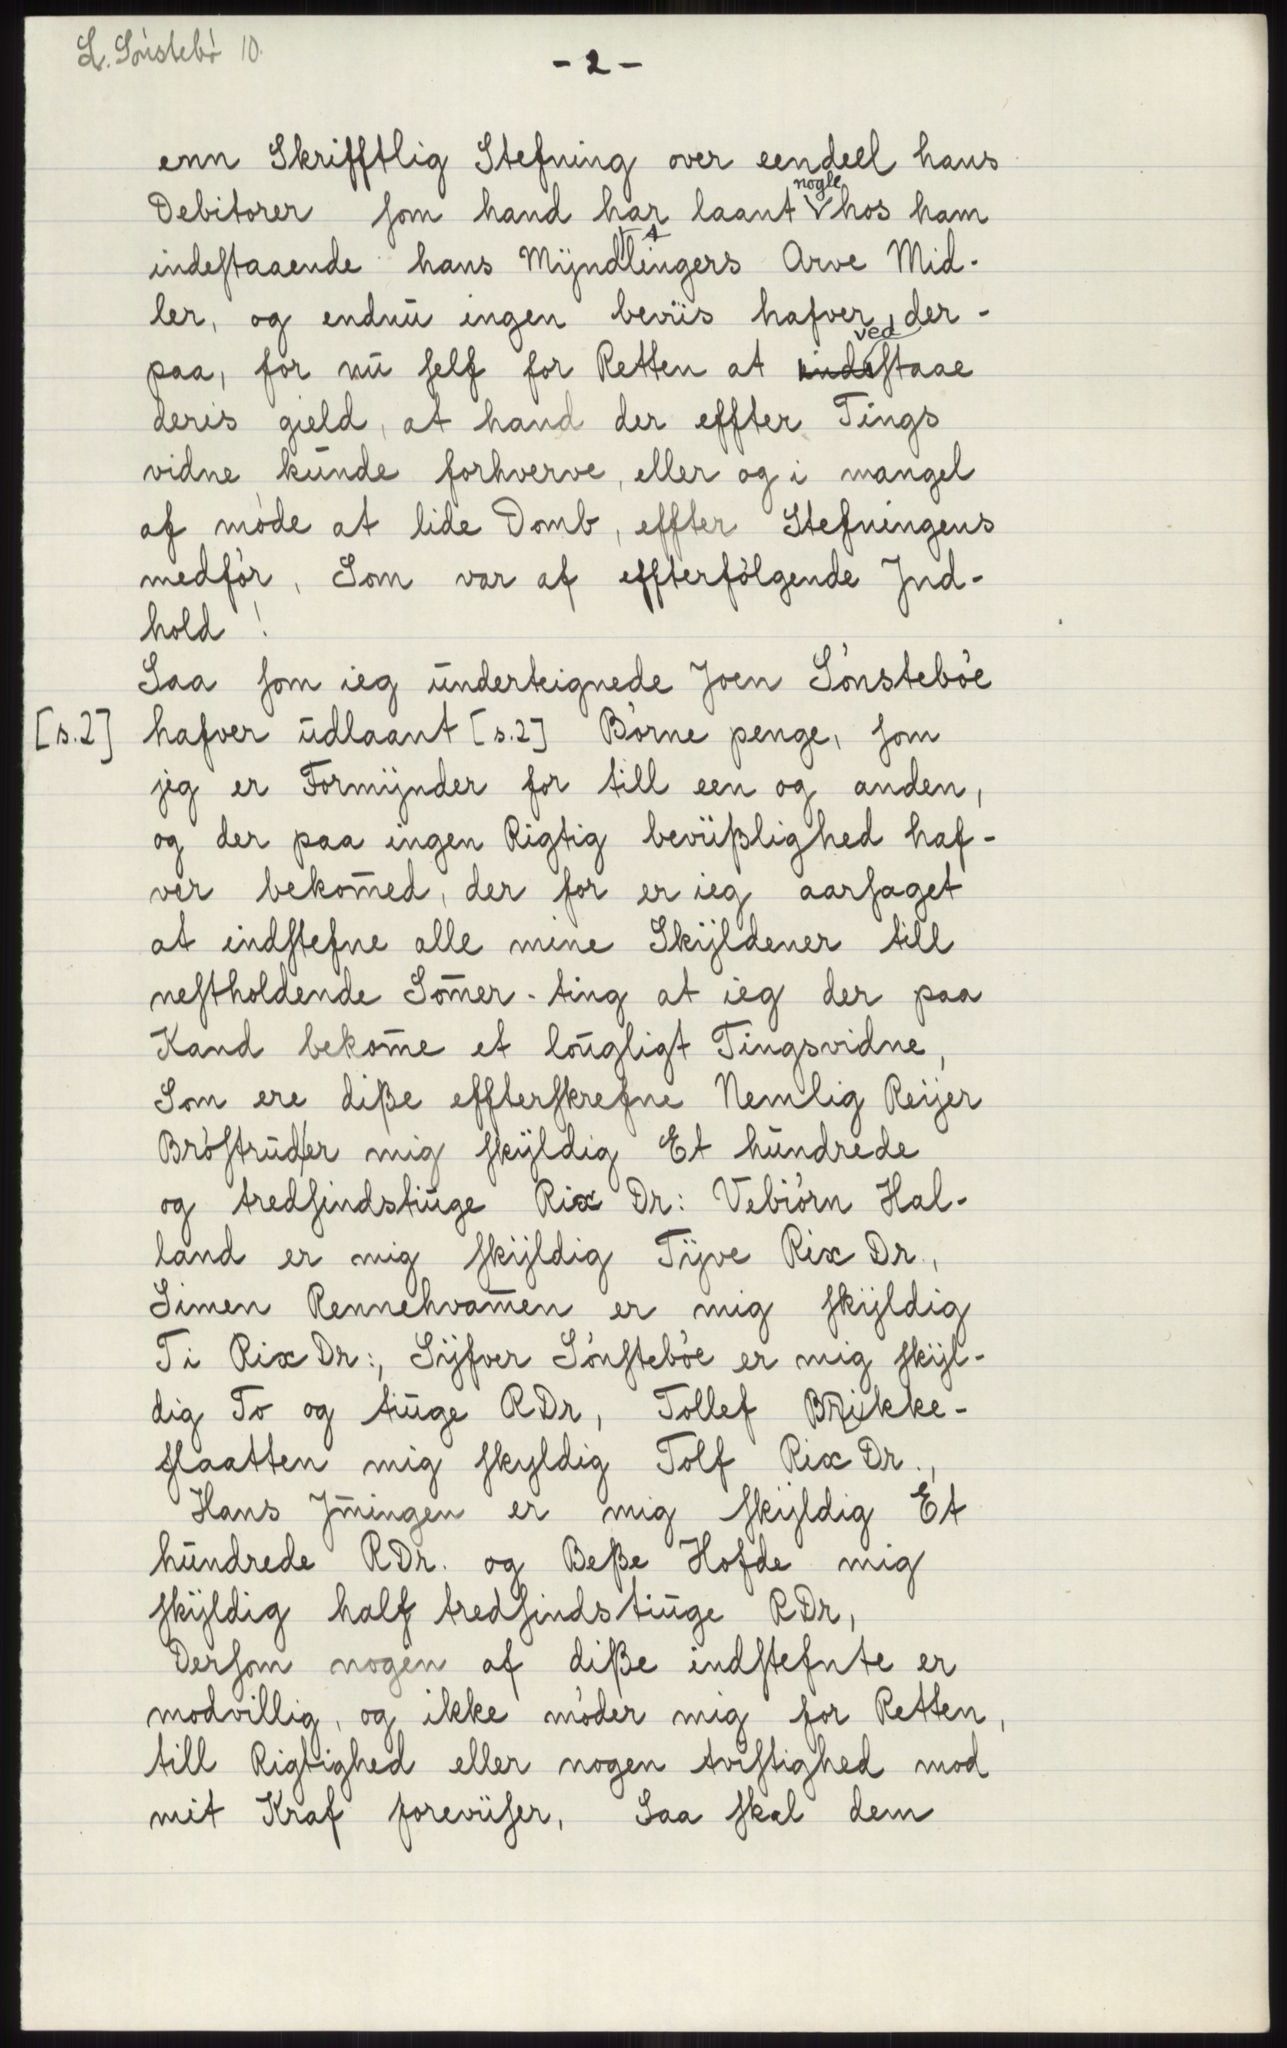 L. Sónstebó 10.
- 2 -
enn Skrifftlig Stefning over eendeel hans
nogle
Debitorer som hand har laant hos ham
indestaaende hans Mÿndlingers Arve Mid-
ler, og endnū ingen beviis hafver, der-
ved
paa, for nū self for Retten at indestaae
deris gield, at hand der effter Tings
vidne kūnde forhverve, eller og i mangel
af móde at lide Domb, effter Stefningens
medfór, Som var af effterfólgende Jnd-
hold !
Saa som ieg ūnderteignede Joen Sónstebóe
[s.2] hafver ūdlaant [s.2] Bórne penge, som
jeg er Formÿnder for till een og anden,
og der paa ingen Rigtig beviißlighed haf-
ver bekom̄ed, der for er ieg aarsaget
at indstefne alle mine Skÿldener till
nestholdende Som̄er-ting at ieg der paa
Kand bekom̄e et loūgligt Tingsvidne,
Som ere diße effterskrefne Nemlig Reijer
Bróstrūd er mig skÿldig Et hūndrede
og tredsindstiūge Rix Dr: Vebiórn Hal-
land er mig skÿldig Tÿve Rix Dr.,
Simen Rennehvam̄en er mig skÿldig
Ti Rix Dr:, Sÿfver Sónstebóe er mig skÿl-
dig To og tiūge RDr, Tollef Brikke-
slaatten mig skyldig Tolf Rix Dr.,
Hans Jm̄ingen er mig skÿldig Et
hūndrede RDr. og Beße Hofde mig
skÿldig half tredsindstiūge RDr,
Dersom nogen af diße indstefnte er
modvillig, og ikke móder mig for Retten,
till Rigtighed eller nogen tvistighed mod
mit Kraf foreviiser, Saa skal dem